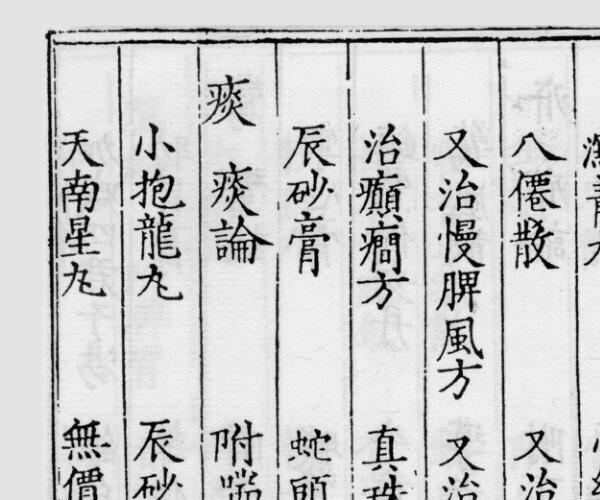 八僊散 又治
又治慢脾風方 又治
治癲癇方 真珠
辰砂膏 蛇頭
痰 痰論 附喘
小抱龍丸 辰砂
天南星丸 無價